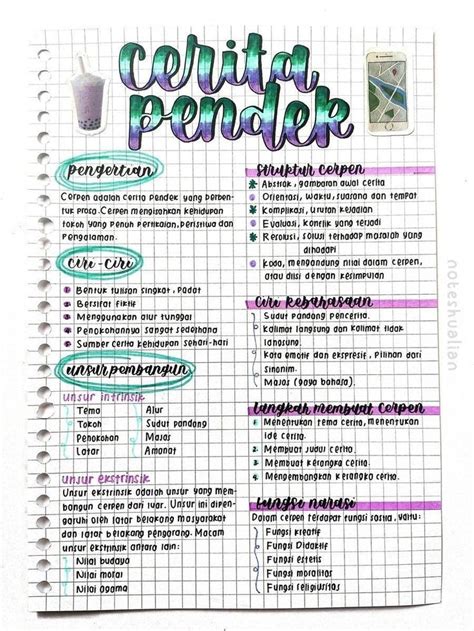 cerita
pendek
pengertian
Cerpen adalah cerita pendek yang berben-
tuk prosa. Cerpen mengisahkan kehidupan
tokoh yang penuh pertikaian, peristiwa dan
pengalaman.
ciri-ciri
Bentuk tulisan singkat, padat
Bersifat fiktif
Menggunakan alur tunggal
Penokohannya sangat sederhana
Sumber cerita kehidupan sehari-hari
unsur pembangun
unsur intrinsik
Tema
Tokoh
Penokohan
Latar
Alur
Sudut pandang
Majas
Amanat
Unsur ekstrinsik
Unsur ekstrinsik adalah unsur yang mem-
bangun cerpen dari luar. Unsur ini dipen-
garuhi oleh latar belakang masyarakat
dan latar belakang pengarang. Macam
unsur ekstrinsik antara lain:
Nilai budaya
Nilai moral
Nilai agama
Struktur cerpen
Abstrak, gambaran awal cerita
Orientasi, waktu, suasana dan tempat
Komplikasi, urutan kejadian
Evaluasi, konflik yang terjadi
Resolusi, solusi terhadap masalah yang
dihadapi
Koda, mengandung nilai dalam cerpen,
atau diisi dengan kesimpulan
Ciri kebahasaan
Sudut pandang pencerita.
Kalimat langsung dan kalimat tidak
langsung.
Kata emotif dan ekspresif, pilihan dari
sinonim.
Majas (gaya bahasa).
Langkah membuat cerpen
1. Menentukan tema cerita, menentukan
ide cerita.
2. Membuat sudut cerita.
3. Membuat kerangka cerita.
4. Mengembangkan kerangka cerita.
Fungsi narasi
Dalam cerpen terdapat fungsi sastra, yaitu:
Fungsi kreatif
Fungsi Didaktif
Fungsi estetis
Fungsi moralitas
Fungsi religiusitas
noteshualian